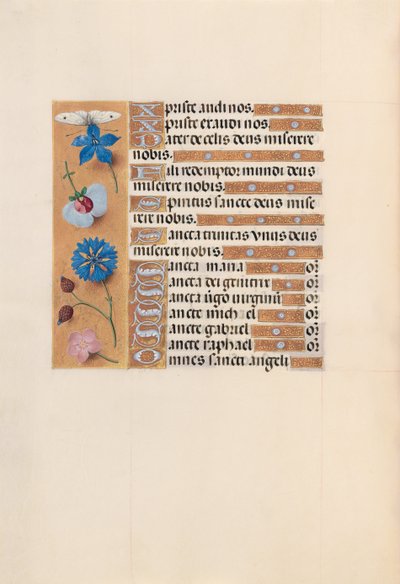 Xpriste audi nos.
Xpriste exaudi nos.
Pater de celis deus miserere
nobis.
Fili redemptor mundi deus
miserere nobis.
Spiritus sancte deus mise
rere nobis.
Sancta trinitas unus deus
miserere nobis.
Sancta maria or
Sancta dei genitrix or
Sancta virgo virginum or
Sancte michael or
Sancte gabriel or
Sancte raphael or
Omnes sancti angeli